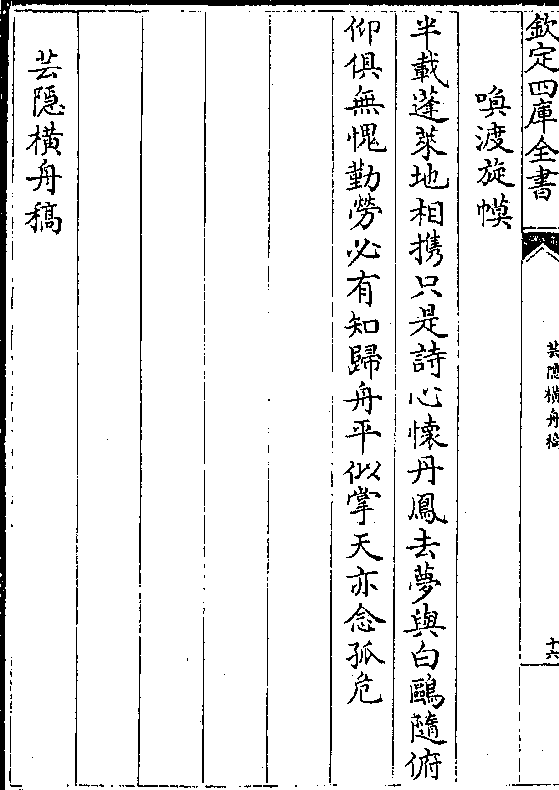 欽定四庫全書
芸隠橫舟稿
十六
喚渡旋幙
半載蓬萊地相携只是詩心懷丹鳳去夢與白鷗隨俯
仰俱無愧勤勞必有知歸舟平似掌天亦念孤危
芸隠橫舟稿